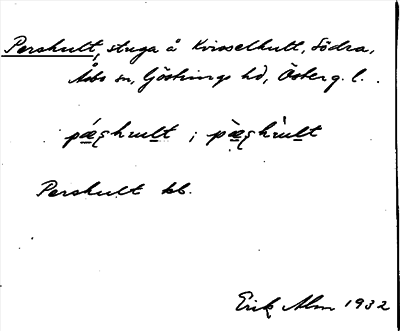 Pershult, stuga å Kisselhult, Södra,
Åsbo sn, Göstrings hd, Österg. l.
pæ̀ʂhul̲t ; pæ̀ʂhùl̲t
Pershult kb.
Erik Alm 1932